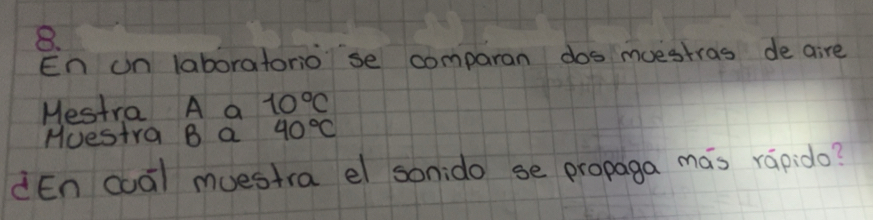 8.
En un laboratorio se comparan dos muestras de aire
Mestra A a 10°C
Muestra B a 40°C
¿En cuál muestra el sonido se propaga más rápido?